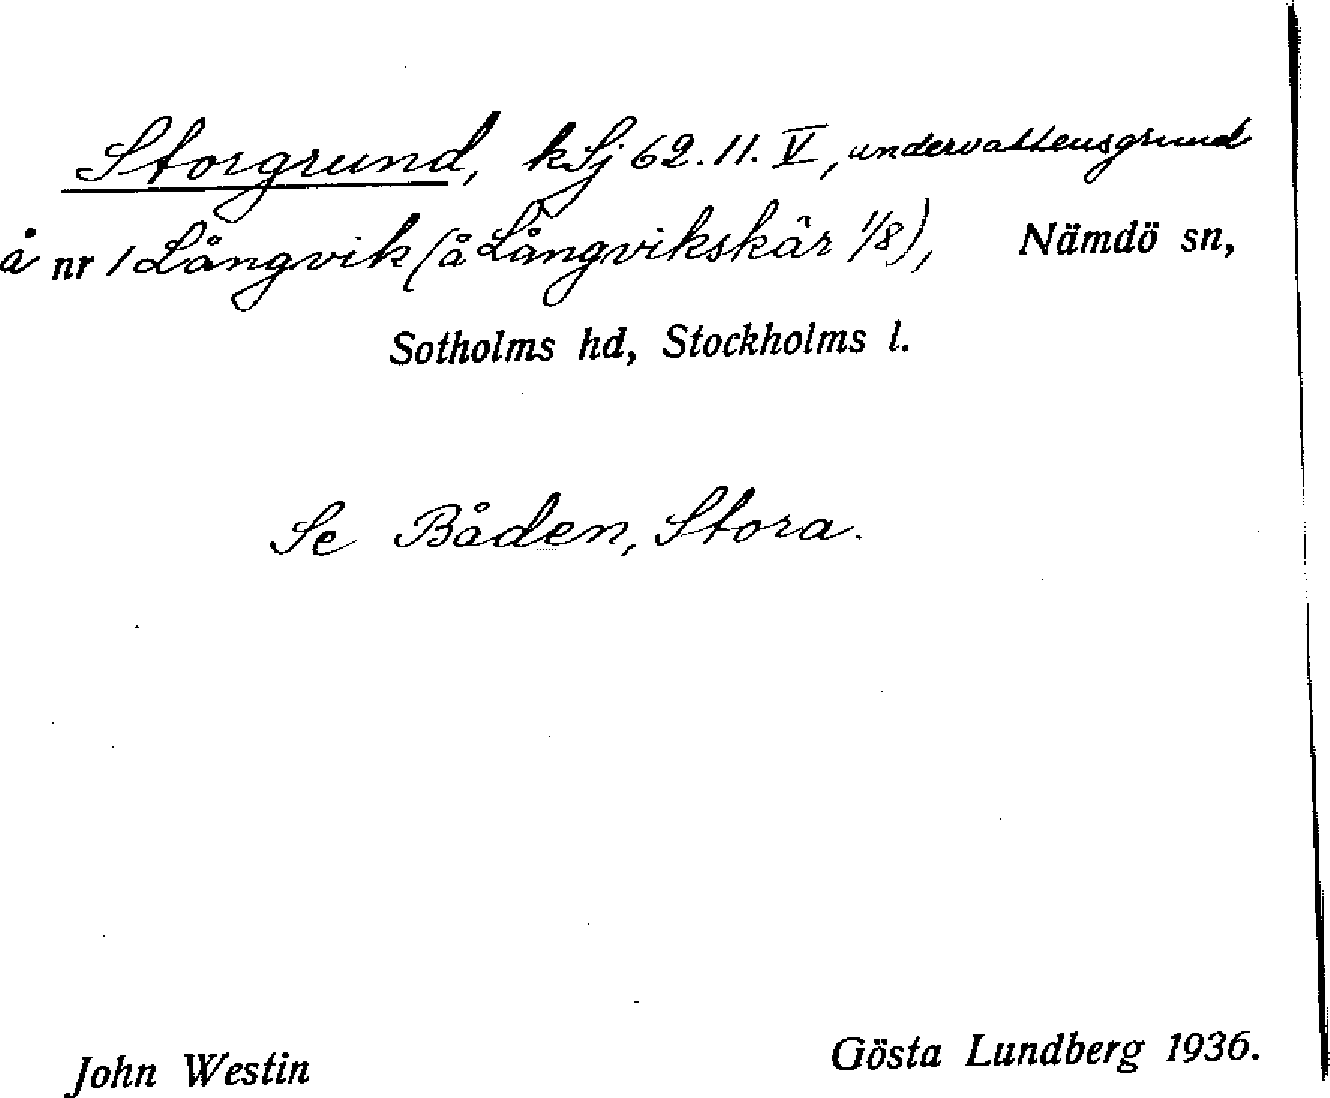 Storgrund, kSj 62.11. V, undervattensgrund
å nr 1 Långvik (å Långvikskär 1/8), Nämdö sn,
Sotholms hd, Stockholms l.
Se Båden, Stora.
John Westin Gösta Lundberg 1936.